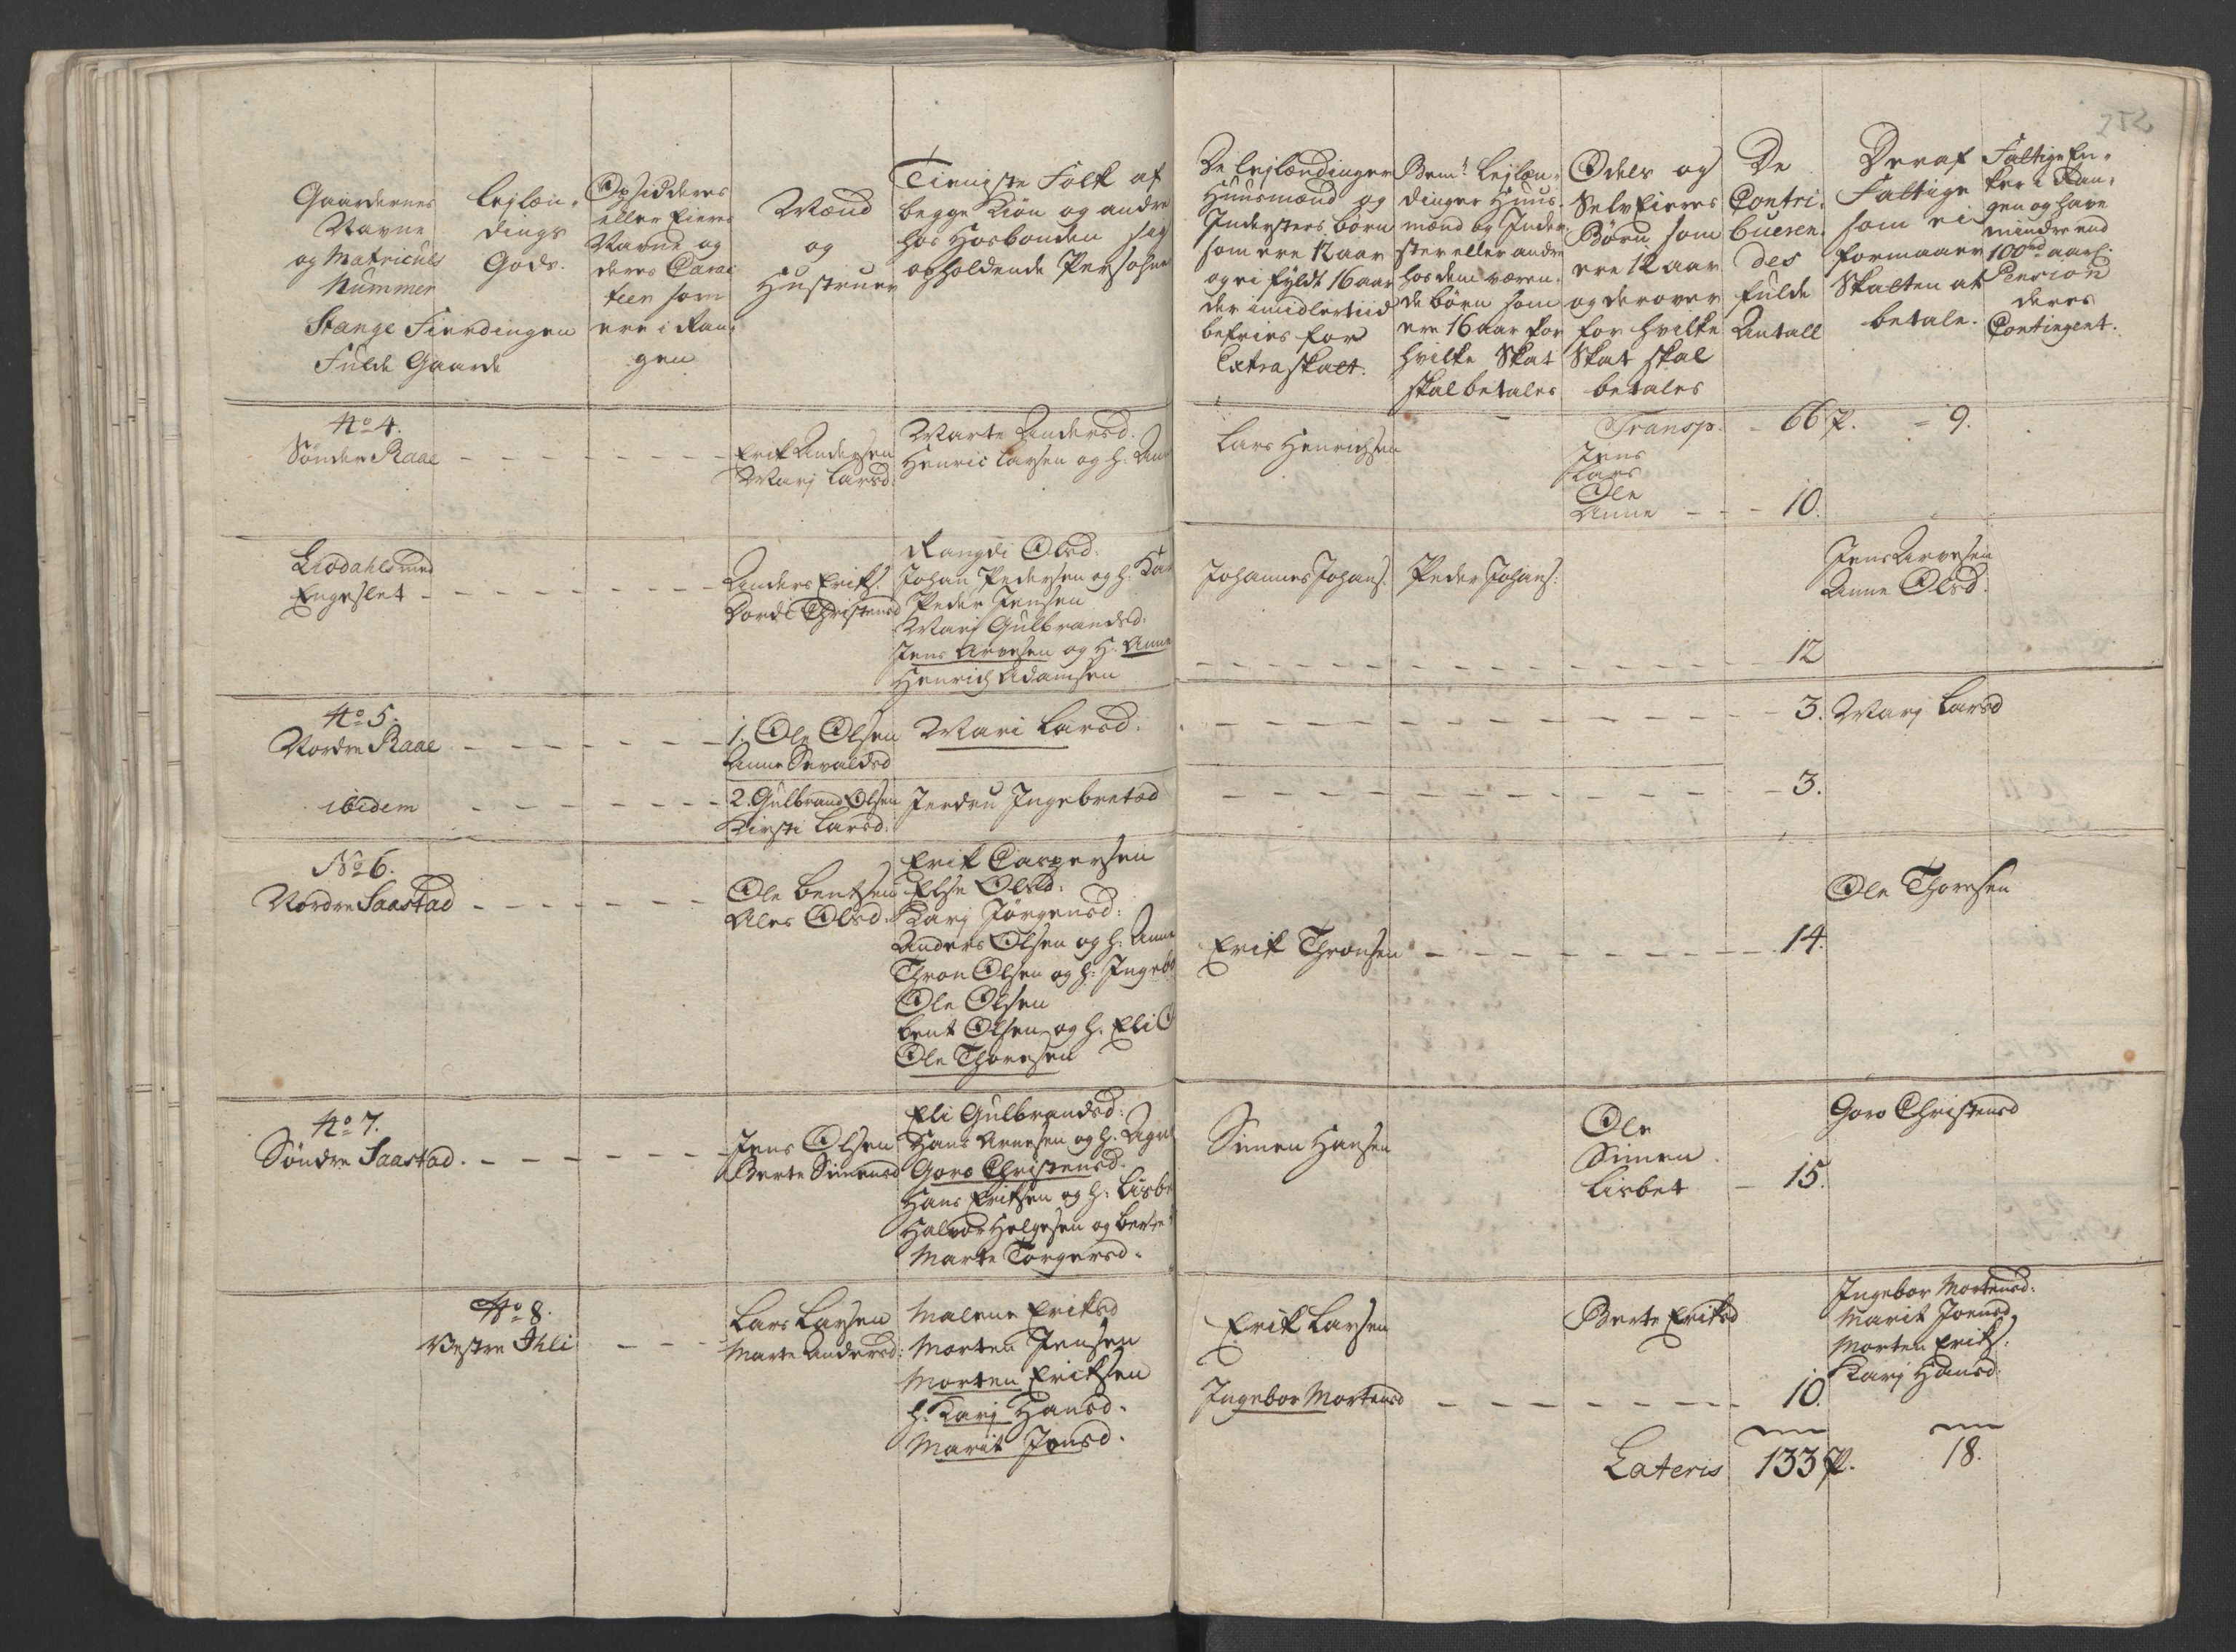 252
Gaardernes
Navne
og Matriculs
Nummer
Stange Fierdingen
Fulde Gaarde
Lejlæn-
dings
Gods.
Opsiddernes
eller Eieres
Navne og
deres Carac
teer som
ere i Ran-
gen
Mænd
og
Hustruer
Tieniste Folk af
begge Kiøn og andre
hos Hosbonden sig
opholdende Persohner
De Lejlændinger
Huusmænd og
Indersters børn
som ere 12 aar
og ei fyldt 16 aar
der imidlertiid
befries for
Extraskatt.
Bemte Lejlæn-
dinger Huus-
mænd og Inder-
ster eller andre
hos dem væren-
de børn som
ere 16 aar for
hvilke Skat
skal betales
Odels og
SelvEieres
Børn som
ere 12 aar
og derover
for hvilke
Skat skal
betales
De
Contri-
bueren-
des
fulde
Antall
Deraf
Fattige
som ei
formaaer
Skatten at
betale.
Fattige En-
ker i Ran-
gen og have
mindre end
100rd aarl:
Pension
deres
Contingent.
No 4.
Sønder Raae
Erik Andersen
Marj Larsd.
Marte Andersd.
Henric Larsen og h. Ann
Lars Henrichsen
Transp. - 66 P. = 9.
Jens
Lars
Ole
Anne - - 10.
Liødahls med
Engeslet
Anders Eriks.
Dorde Christensd
Rangdi Olsd.
Johan Pedersen og h. Kar
Peder Jensen
Marj Gulbrandsd.
Jens Arvesen og H. Anne
Henrich Adamsen
Johannes Johans.
Peder Johans:
12
Jens Arvesen
Anne Olsd.
No 5.
Nordre Raae
1. Ole Olsen
Anne Sevaldsd
Mari Larsd.
3. Marj Larsd
ibidem
2. Gulbrand Olsen
Kirsti Larsd.
Jerdru Ingebretsd
3.
No 6.
Nordre Saastad
Ole Bentsen
Ales Olsd.
Erik Caspersen
Else Olsd:
Karj Jørgensd:
Anders Olsen og h. Anne
Thron Olsen og h. Ingeb
Ole Olsen
Bent Olsen og h. Eli O
Ole Thoresen
Erik Thronsen
14.
Ole Thoresen
No 7.
Søndre Saastad.
Jens Olsen
Berte Simensd
Eli Gulbrandsd:
Hans Arnesen og h. Agn
Goro Christensd.
Hans Eriksen og h. Lisbe
Halvor Helgesen og Berte
Marte Torgersd.
Simen Hansen
Ole
Simen
Lisbet - 15.
Goro Christensd
No 8.
Vestre Ihli
Lars Larsen
Marte Andersd:
Malene Eriksd
Morten Jensen
Morten Ericksen
h. Karj Hansd.
Marit Jonsd.
Erik Larsen
Ingebor Mortensd
Berte Eriksd
10.
Ingebor Mortensd:
Marit Joensd
Morten Eriks.
Karj Hansd.
Lateris 133 P. 18.